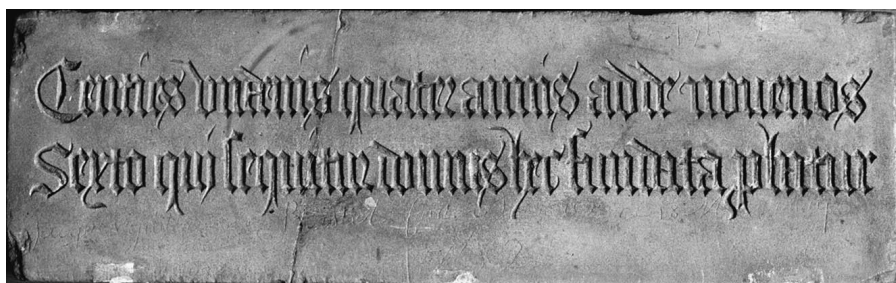 Centies vndenis quater annis adde nouenos
Sexto qui sequitur domus hec fundata